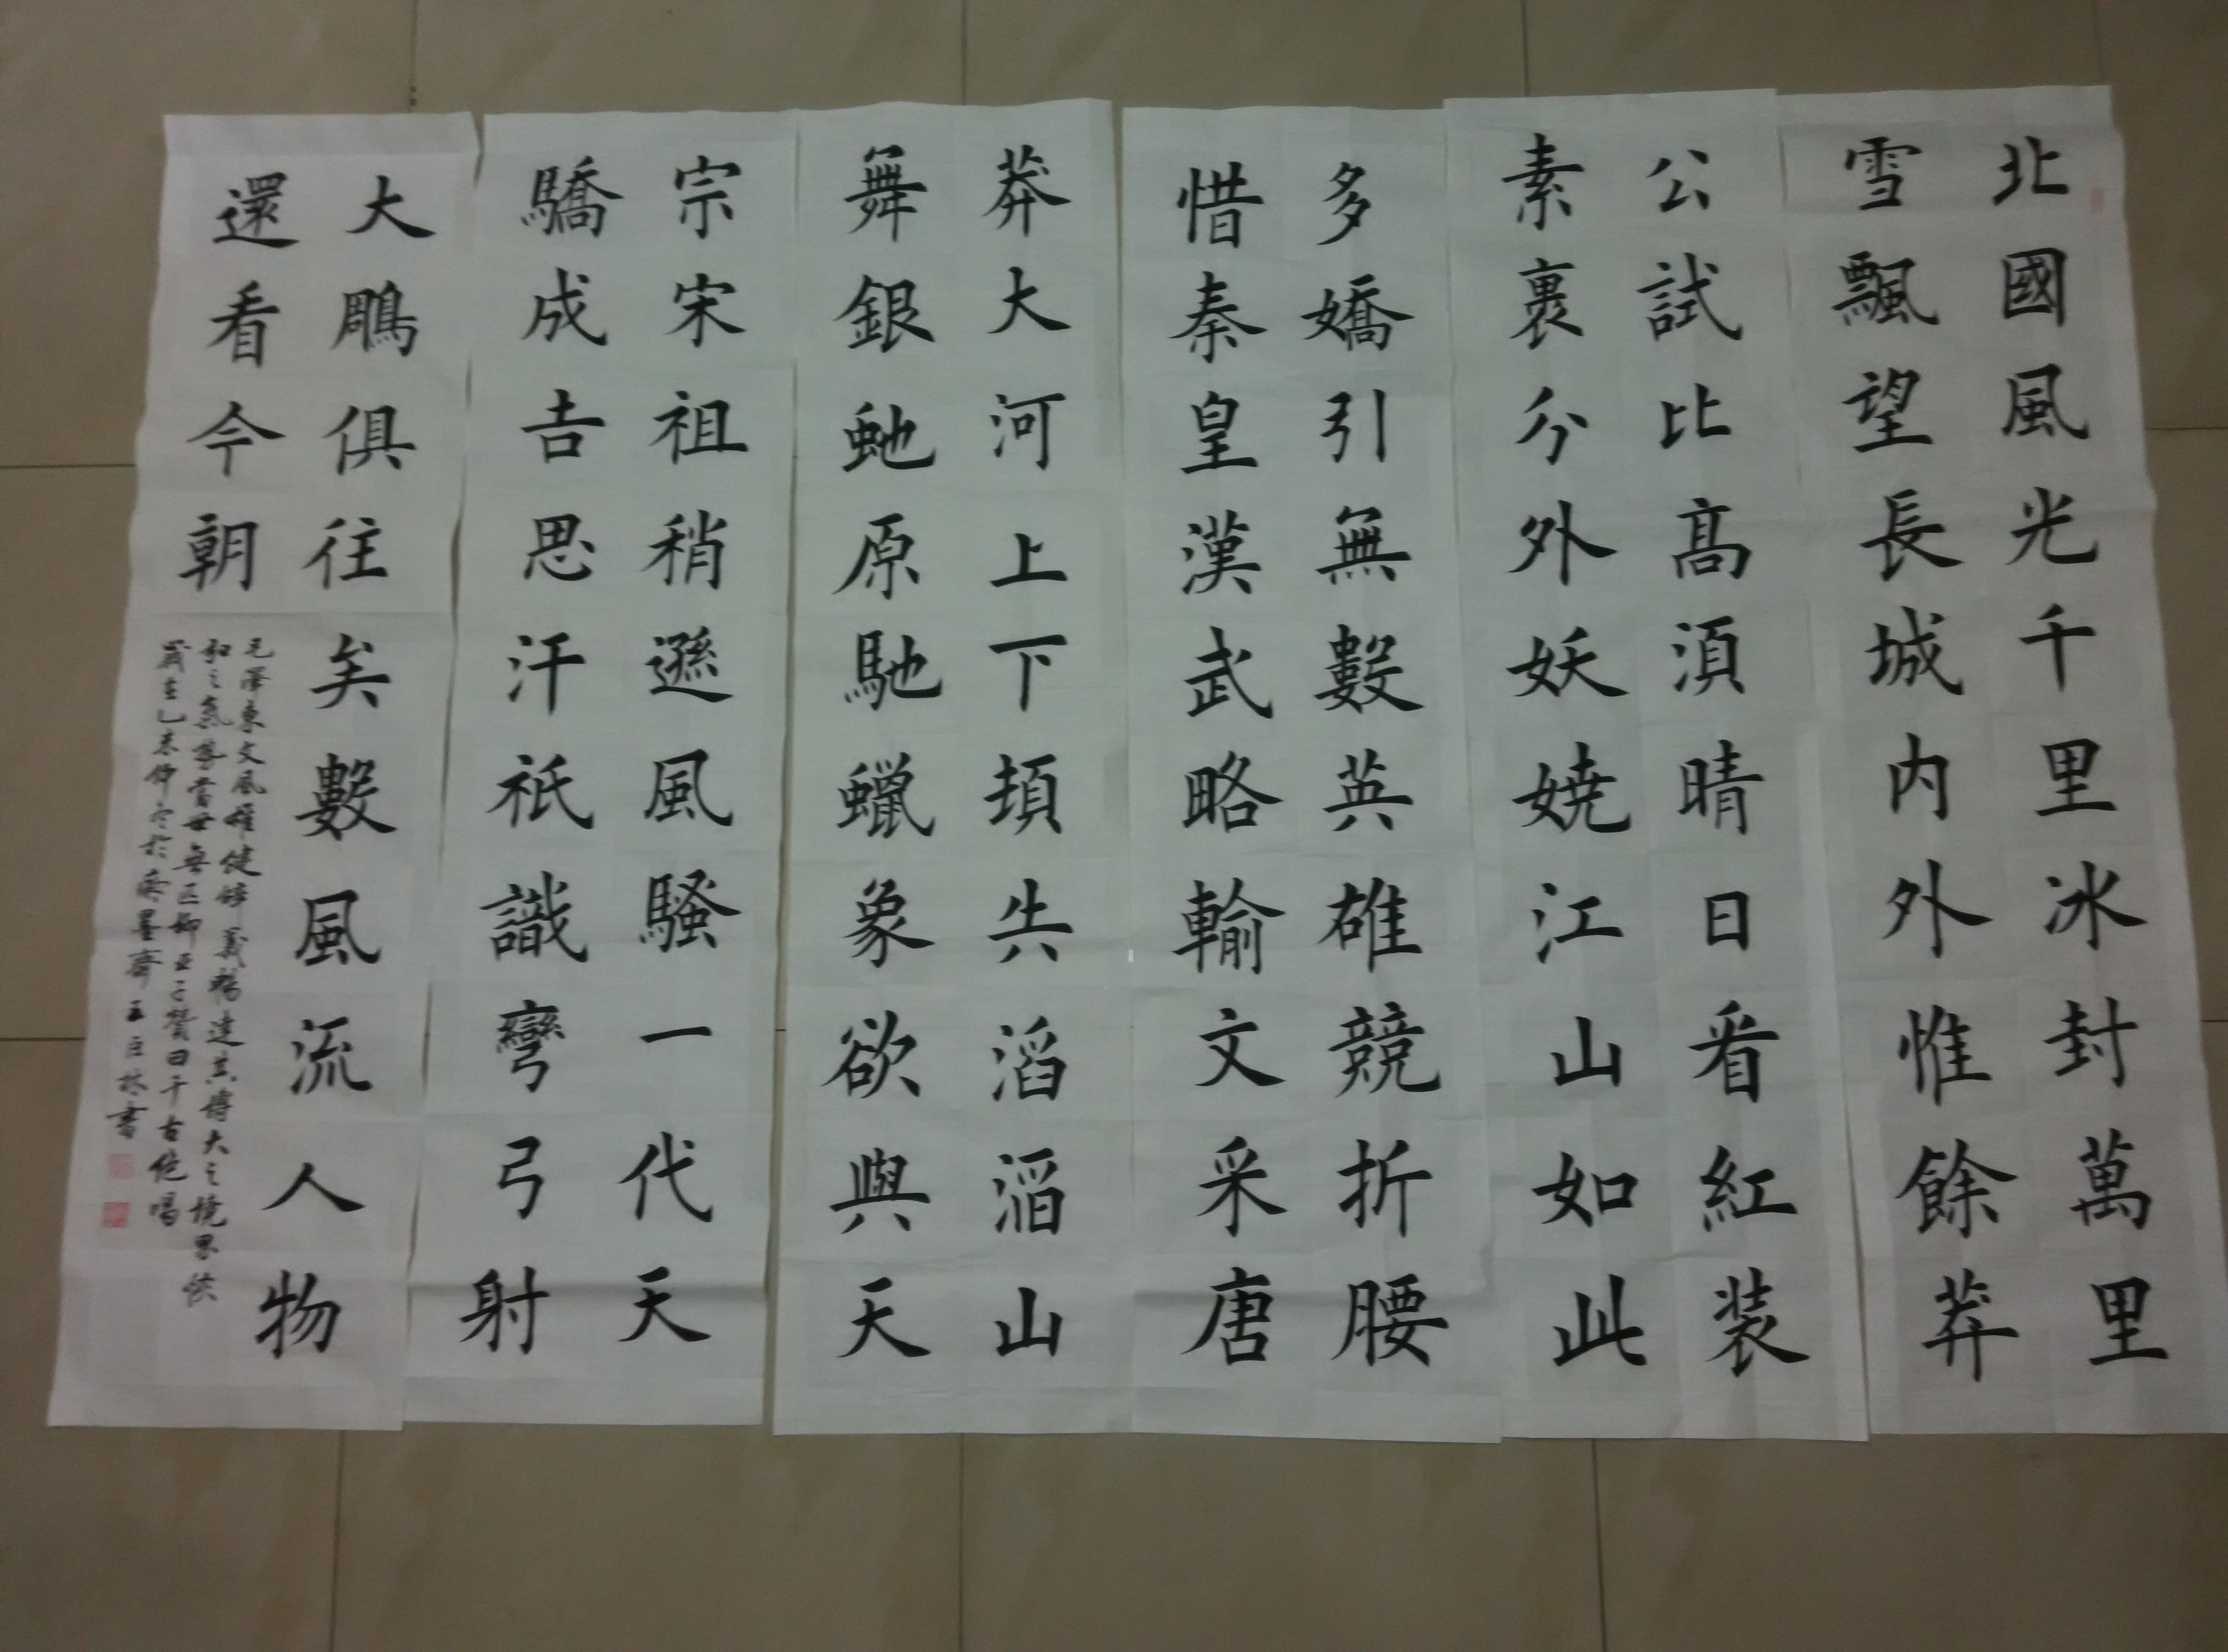 北國風光千里冰封萬里
雪飄望長城内外惟餘莽
公試比髙湏晴日看紅裝
素裹分外妖嬈江山如此
多嬌引無數英雄競折腰
惜秦皇漢武略輸文采唐
莽大河上下頓失滔滔山
舞銀虵原馳蠟象欲與天
宗宋祖稍遜風騷一代天
驕成吉思汗祇識彎弓射
大鵰俱往矣數風流人物
還看今朝
毛澤東文風雄健達其博大之境界恢
之氣勢當世無匹柳亞子贊曰千古絕唱
歲在乙未仲冬於墨齋王林書